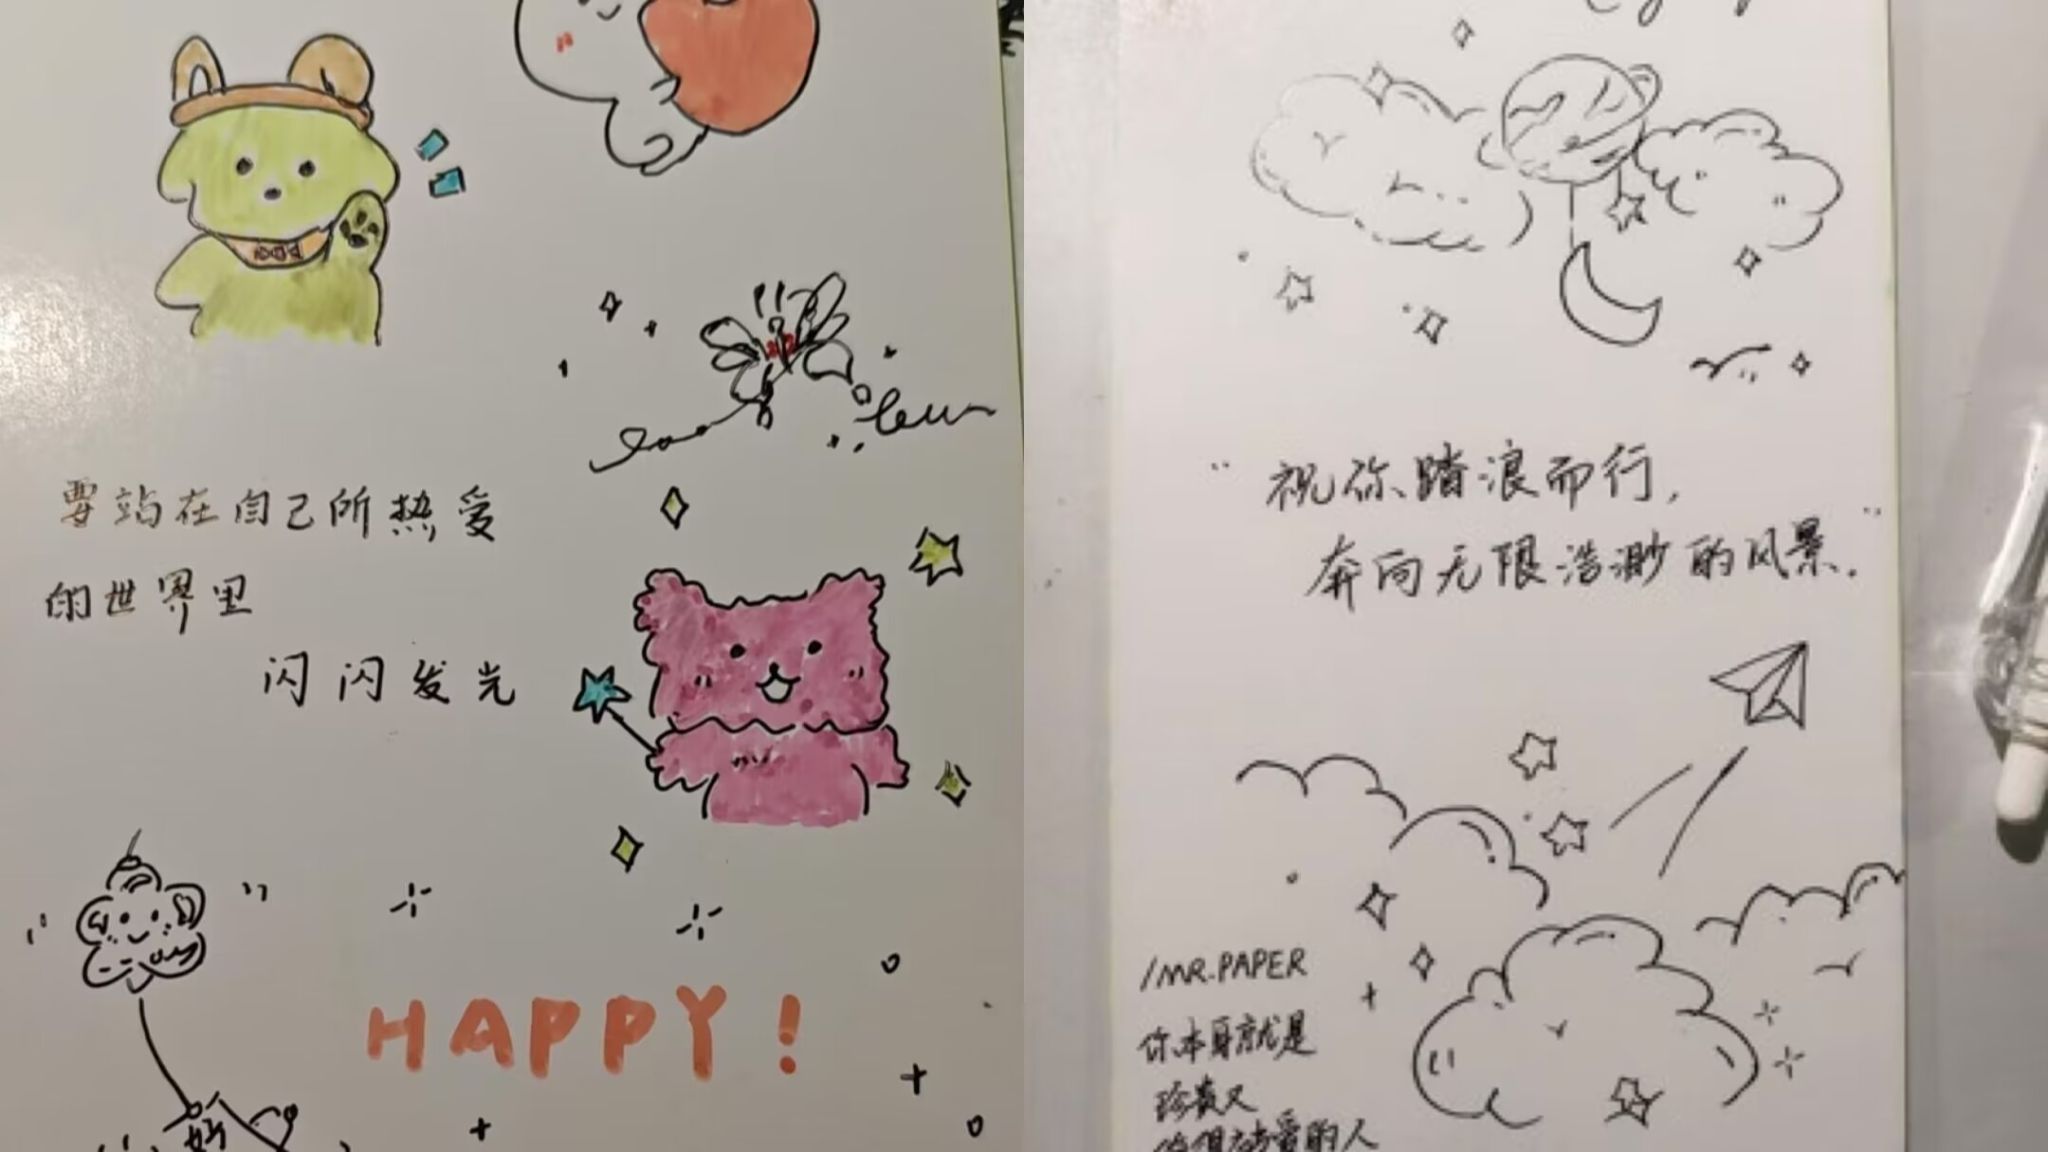 要站在自己所热爱
的世界里
闪闪发光
HAPPY!
"祝你踏浪而行,
奔向无限浩渺的风景."
/MR.PAPER
你本身就是
珍贵又
值得被爱的人